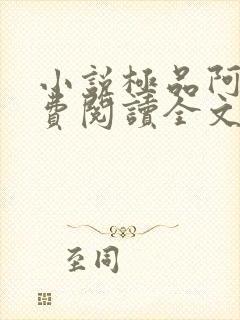 小說極品阿
費閱讀全文
至同